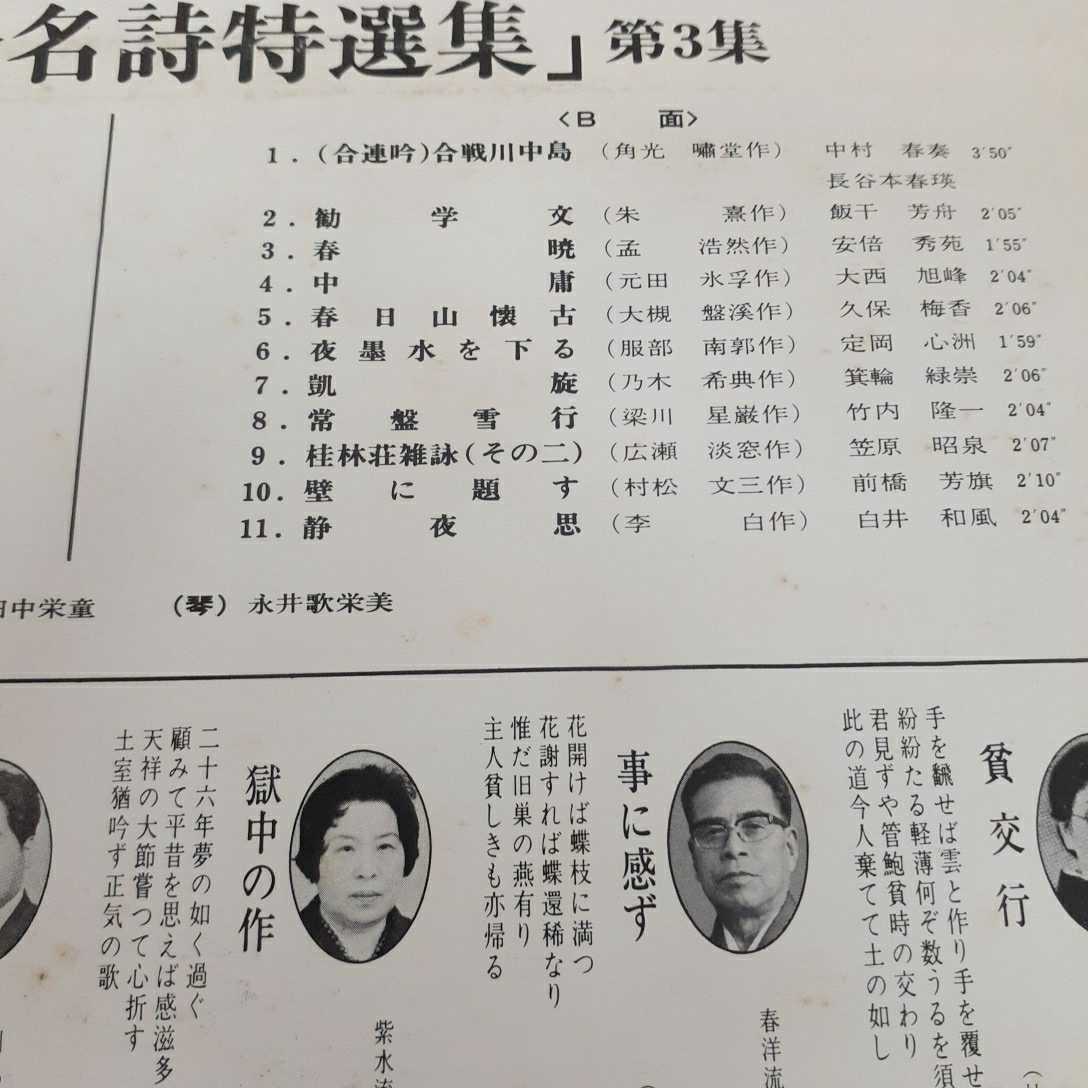 名詩特選集」第3集
〈B 面〉
1．(合連吟)合戦川中島 (角光 嘯堂作) 中村 春奏 3′50″
長谷本春瑛
2．勧学文 (朱 熹作) 飯干 芳舟 2′05″
3．春暁 (孟 浩然作) 安倍 秀苑 1′55″
4．中庸 (元田 永孚作) 大西 旭峰 2′04″
5．春日山懐古 (大槻 盤溪作) 久保 梅香 2′06″
6．夜墨水を下る (服部 南郭作) 定岡 心洲 1′59″
7．凱旋 (乃木 希典作) 箕輪 緑崇 2′06″
8．常盤雪行 (梁川 星巌作) 竹内 隆一 2′04″
9．桂林荘雑詠(その二) (広瀬 淡窓作) 笠原 昭泉 2′07″
10．壁に題す (村松 文三作) 前橋 芳旗 2′10″
11．静夜思 (李 白作) 白井 和風 2′04″
田中栄童 (琴) 永井歌栄美
貧交行
手を飜せば雲と作り手を覆せ
紛紛たる軽薄何ぞ数うるを須
君見ずや管鮑貧時の交わり
此の道今人棄てて土の如し
春洋流
事に感ず
花開けば蝶枝に満つ
花謝すれば蝶還稀なり
惟だ旧巣の燕有り
主人貧しきも亦帰る
紫水流
獄中の作
二十六年夢の如く過ぐ
顧みて平昔を思えば感滋多
天祥の大節嘗つて心折す
土室猶吟ず正気の歌